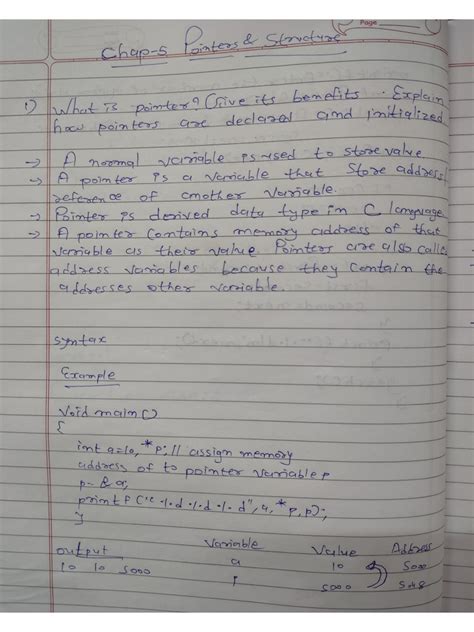 Page
Chap-5 Pointers & Structure
1) What is pointer? Give its benefits. Explain
how pointers are declared and initialized
→ A normal variable is used to store value
→ A pointer is a variable that store address
reference of another variable.
→ Pointer is derived data type in C language
→ A pointer contains memory address of that
variable as their value Pointers are also called
address variables because they contain the
addresses other variable.
syntax
Example
void main()
{
int a=10, *p; // assign memory
address of to pointer variable p
p= &a;
printf("%d %d %d", a, *p, p);
}
output Variable Value Address
10 10 5000 a 10 5000
p 5000